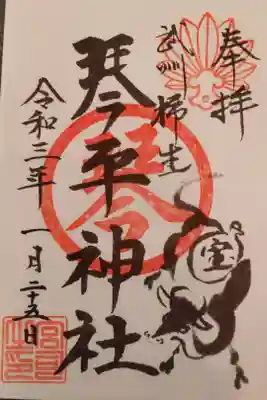 奉拝
武州柿生
琴平神社
令和三年 一月二十五日
宝